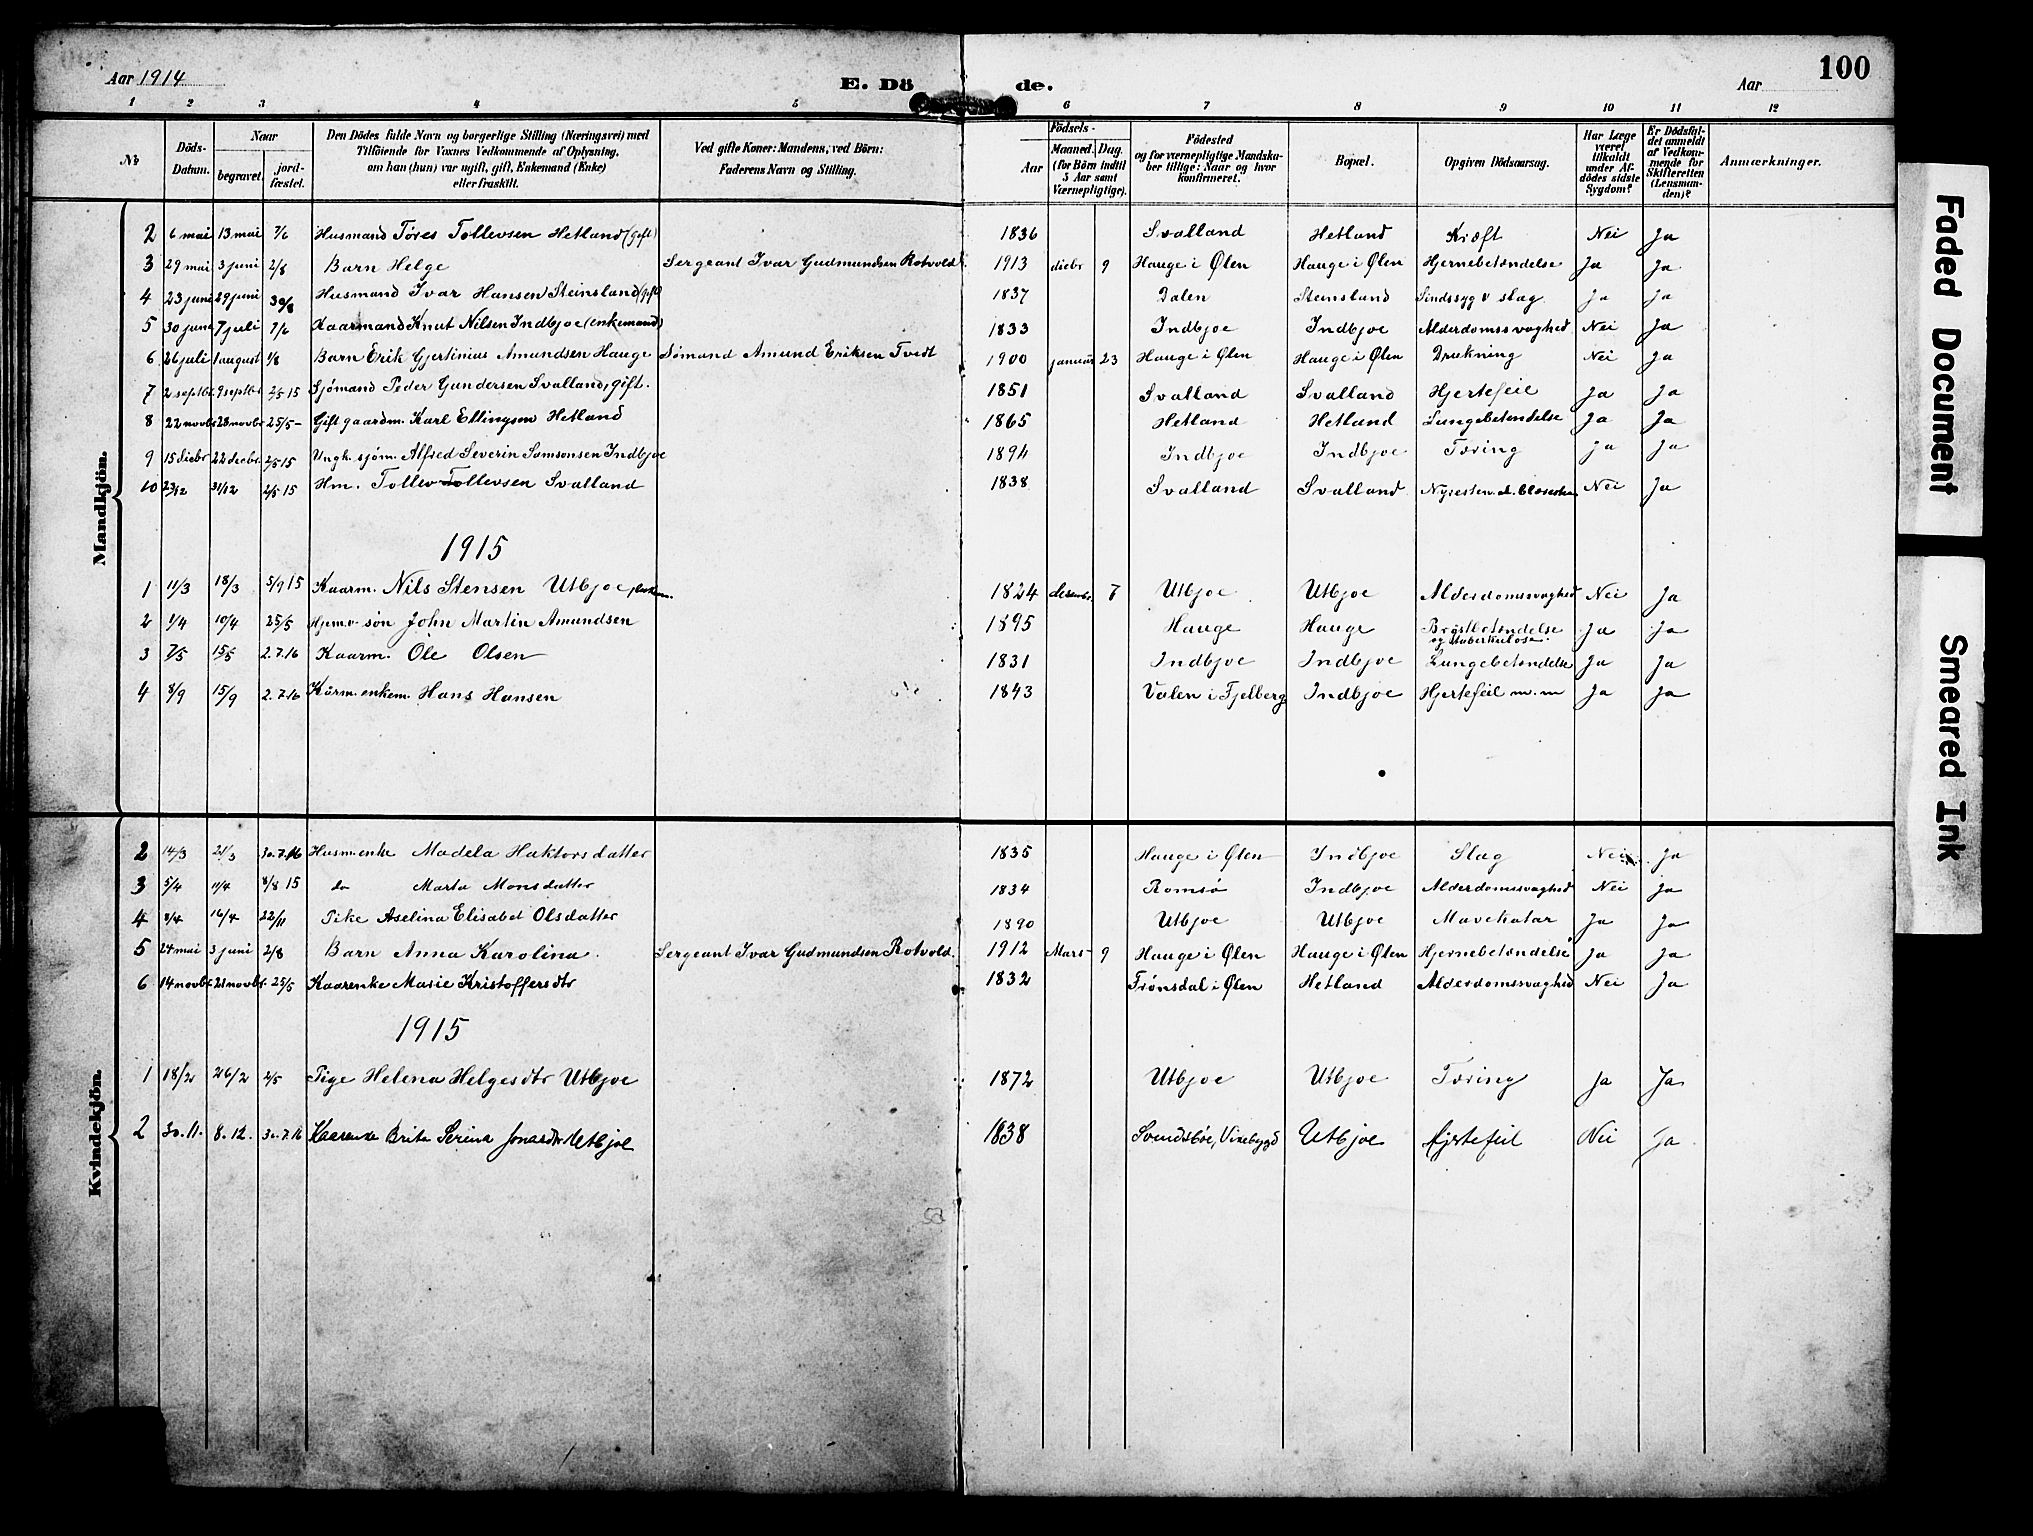 Aar 1914 E. Dö de. Aar 100
1 2 3 4 5 6 7 8 9 10 11 12
No
Döds-Datum.
Naar
begravet.
jord-fæstet.
Den Dödes fulde Navn og borgerlige Stilling (Næringsvei) med
Tilföiende for Voxnes Vedkommende af Oplysning,
om han (hun) var ugift, gift, Enkemand (Enke)
eller fraskilt.
Ved gifte Koner: Mandens, ved Börn:
Faderens Navn og Stilling.
Födsels-
Aar
Maaned. Dag.
(for Börn indtil
5 Aar samt
Værnepligtige).
Födested
og for værnepligtige Mandska-
ber tillige: Naar og hvor
konfirmeret.
Bopæl.
Opgiven Dödsaarsag.
Har Læge
været
tilkaldt
under Af-
dödes sidste
Sygdom?
Er Dödsfal-
det anmeldt
af Vedkom-
mende for
Skifteretten
(Lensman-
den)?
Anmærkninger.
Mandkjön.
2 6 mai 13 mai 7/6 Husmand Tøres Tollevsen Hetland (gift) 1836 Svalland Hetland Kræft Nei Ja
3 29 mai 3 juni 2/8 Barn Helge Sergeant Ivar Gudmundsen Rotvold 1913 dicbr 9 Hauge i Ølen Hauge i Ølen Hjernebetændelse Ja Ja
4 23 juni 29 juni 30/8 Husmand Ivar Hansen Steinsland (gift) 1837 Dalen Steinsland Sindssyg v slag Ja Ja
5 30 juni 7 juli 7/6 Kaarmand Knut Nilsen Indbjoe (enkemand) 1833 Indbjoe Indbjoe Alderdomssvaghed Nei Ja
6 26 juli 1 august 1/8 Barn Erik Gjertinius Amundsen Hauge Sømand Amund Eriksen Tvedt 1900 januar 23 Hauge i Ølen Hauge i Ølen Drukning Nei Ja
7 2 septbr. 9 septbr. 2/5 15 Sjømand Peder Gundersen Svalland, gift. 1851 Svalland Svalland Hjertefeil Ja Ja
8 22 novbr 28 novbr 25/5 - Gift gaardm. Karl Ellingsen Hetland 1865 Hetland Hetland Lungebetændelse Ja Ja
9 15 dicbr 22 decbr. 2/5 15 Ungk. sjøm. Alfred Severin Samsonsen Indbjoe 1894 Indbjoe Indbjoe Tæring Ja Ja
10 23/12 31/12 2/5 15 Hm. Tollev Tollevsen Svalland 1838 Svalland Svalland Nyresten Nei Ja
1915
1 11/3 18/3 5/9 15 Kaarm. Nils Stensen Utbjoe, enkem. 1824 desembr. 7 Utbjoe Utbjoe Alderdomssvaghed Nei Ja
2 1/4 10/4 25/5 søn John Martin Amundsen 1895 Hauge Hauge Brystbetændelse og tuberkulose. Ja Ja
3 7/5 15/5 2.7.16 Kaarm. Ole Olsen 1831 Indbjoe Indbjoe Lungebetændelse Ja Ja
4 8/9 15/9 2.7.16 Kårm. enkem. Hans Hansen 1843 Valen i Fjelberg Indbjoe Hjertefeil m.m Ja Ja
Kvindekjön.
2 14/3 21/3 30.7.16 Husm.enke Madela Haktorsdatter 1835 Hauge i Ølen Indbjoe Slag Nei Ja
3 5/4 11/4 8/8 15 do Marta Monsdatter 1834 Romsø Indbjoe Alderdomssvaghed Nei Ja
4 8/4 16/4 22/11 Pike Aselina Elisabet Olsdatter 1890 Utbjoe Utbjoe Mavekatar Ja Ja
5 24 mai 3 juni 2/8 Barn Anna Karolina. Sergeant Ivar Gudmundsen Rotvold. 1912 Mars 9 Hauge i Ølen Hauge i Ølen Hjernebetændelse Ja Ja
6 14 novbr. 21 novbr. 25/5 Kaarenke Marie Kristoffersdtr 1832 Trønsdal i Ølen Hetland Alderdomssvaghed Nei Ja
1915
1 18/2 26/2 2/5 Pige Helena Helgesdtr Utbjoe 1872 Utbjoe Utbjoe Tæring Ja Ja
2 30.11. 8.12. 30.7.16 Kaarenke Brita Serina Jonasdtr Utbjoe 1838 Svendsbøe, Vikebygd Utbjoe Hjertefeil Nei Ja
Faded Document
Smeared Ink